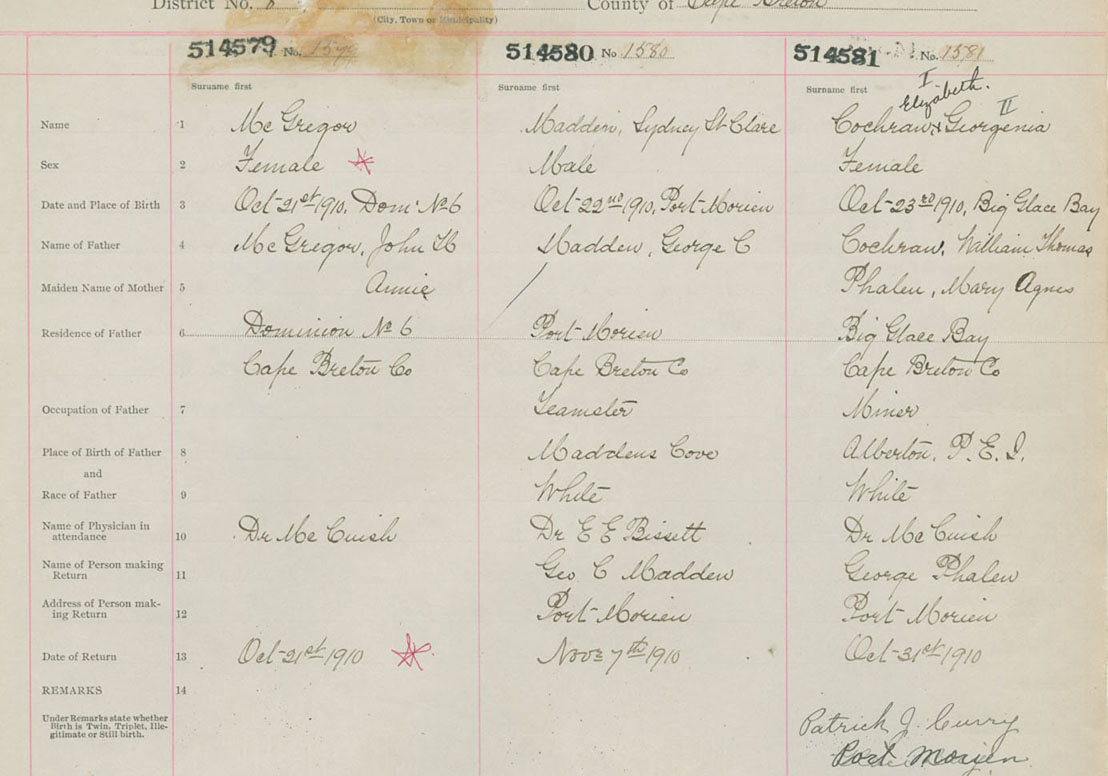 District No. 8 County of Cape Breton
(City, Town or Municipality)
514579 No. 514580 No 1580 514581 No. 1581
Surname first Surname first Surname first
I
Elizabeth. II
Name 1 Mc Gregor Madden, Sydney St Clare Cochran, Georgenia
Sex 2 Female Male Female
Date and Place of Birth 3 Oct-21st 1910, Dom' No 6 Oct-22nd 1910, Port-Morien Oct-23rd 1910, Big Glace Bay
Name of Father 4 Mc Gregor, John H Madden, George C Cochran, William Thomas
Maiden Name of Mother 5 Annie / Phalen, Mary Agnes
Residence of Father 6 Dominion No 6 Port-Morien Big Glace Bay
Cape Breton Co Cape Breton Co Cape Breton Co
Occupation of Father 7 Teamster Miner
Place of Birth of Father 8 Maddens Cove Alberton, P.E.I.
and
Race of Father 9 White White
Name of Physician in
attendance 10 Dr Mc Cuish Dr E E Bissett Dr Mc Cuish
Name of Person making
Return 11 Geo C Madden George Phalen
Address of Person mak-
ing Return 12 Port-Morien Port-Morien
Date of Return 13 Oct-21st 1910 Nov 7th 1910 Oct-31st 1910
REMARKS 14
Under Remarks state whether
Birth is Twin, Triplet, Ille-
gitimate or Still birth.
Patrick J. Curry
Port Morien